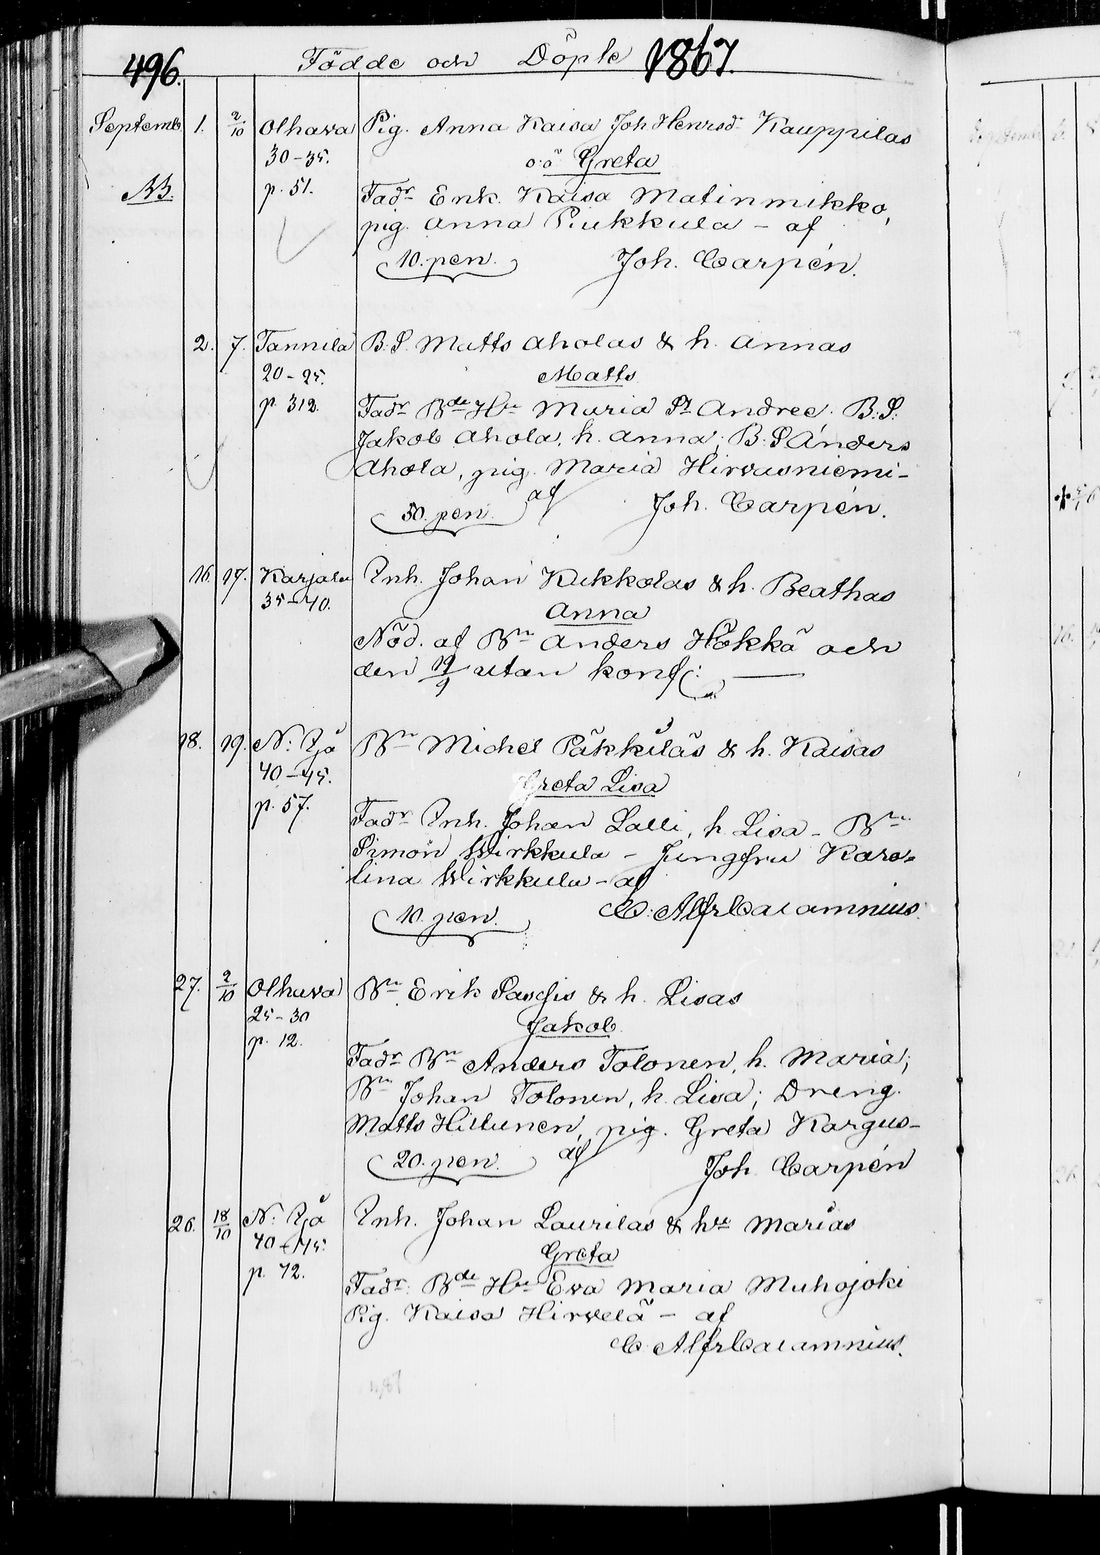 496. Födde och Döpte 1867.
Septemb. 1. 2/10 Olhava Pig. Anna Kaisa Joh. Henrsd. Kauppilas
30-35. o.ä. Greta
NB. p. 51. Fadr Enk. Kaisa Matinmikko,
pig. Anna Piukkula - af
10. pen. Joh. Carpén.
2. 7. Tannila B.S. Matts Aholas & h. Annas
20-25. Matts
p. 312. Fadr Bde Hn Maria Andree. B.S.
Jakob Ahola, h. Anna; B.S Anders
Ahola, pig. Maria Hirvasniemi-
50. pen. af Joh. Carpén.
16. 17. Karjalu Inh. Johan Kukkolas & h. Beathas
35-40. Anna
Nöd. af Bn Anders Hökkä och
den 19/9 utan konf:
18. 19. N: Ijå Bn Michel Päkkiläs & h. Kaisas
40-45. Greta Lisa
p. 57. Fadr Inh. Johan Lalli, h Lisa - Bn
Simon Wirkkula - Jungfru Karo-
lina Wirkkula - af
10. pen. C. Alfr Calamnius.
27. 2/10 Olhava Bn Erik h. Lisas
25-30 Jakob.
p. 12. Fadr Bn Anders Tolonen, h. Maria;
Bn Johan Tolonen, h. Lisa; Dreng.
Matts Hiltunen, pig. Greta Kargus-
20. pen. af Joh. Carpén
26. 18/10 N: Ijå Inh. Johan Laurilas & hs Marias
40-45. Greta
p. 72. Fadr: Bde Hn Eva Maria Muhojoki
Pig. Kaisa Hirvelä - af
C. Alfr Calamnius.